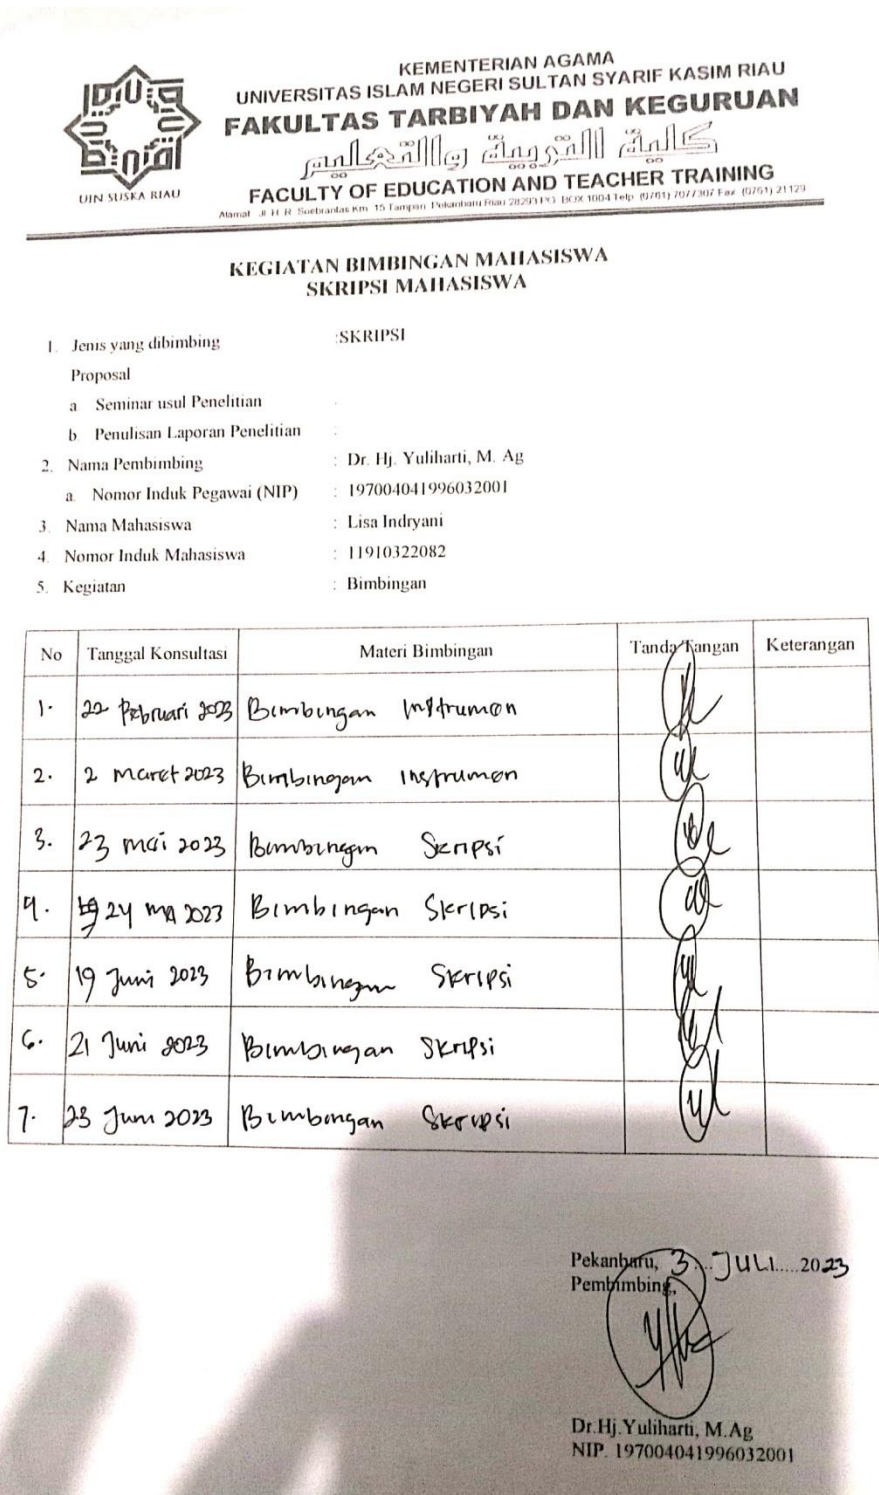 KEMENTERIAN AGAMA
UNIVERSITAS ISLAM NEGERI SULTAN SYARIF KASIM RIAU
FAKULTAS TARBIYAH DAN KEGURUAN
كلية التربية والتعليم
FACULTY OF EDUCATION AND TEACHER TRAINING
Alamat Jl H. R. Soebrantas Km. 15 Tampan Pekanbaru Riau 28293 PO. BOX 1004 Telp. (0761) 7077307 Fax. (0761) 21129
UIN SUSKA RIAU
KEGIATAN BIMBINGAN MAHASISWA
SKRIPSI MAHASISWA
1. Jenis yang dibimbing :SKRIPSI
Proposal
a Seminar usul Penelitian :
b Penulisan Laporan Penelitian :
2. Nama Pembimbing : Dr. Hj. Yuliharti, M. Ag
a. Nomor Induk Pegawai (NIP) : 197004041996032001
3. Nama Mahasiswa : Lisa Indryani
4. Nomor Induk Mahasiswa : 11910322082
5. Kegiatan : Bimbingan
No Tanggal Konsultasi Materi Bimbingan Tanda Tangan Keterangan
1. 22 Februari 2023 Bimbingan Instrumen
2. 2 Maret 2023 Bimbingan Instrumen
3. 23 Mei 2023 Bimbingan Skripsi
4. 24 2023 Bimbingan Skripsi
5. 19 Juni 2023 Bimbingan Skripsi
6. 21 Juni 2023 Bimbingan Skripsi
7. 23 Juni 2023 Bimbingan Skripsi
Pekanbaru, 3 JULI 2023
Pembimbing,
Dr.Hj.Yuliharti, M.Ag
NIP. 197004041996032001